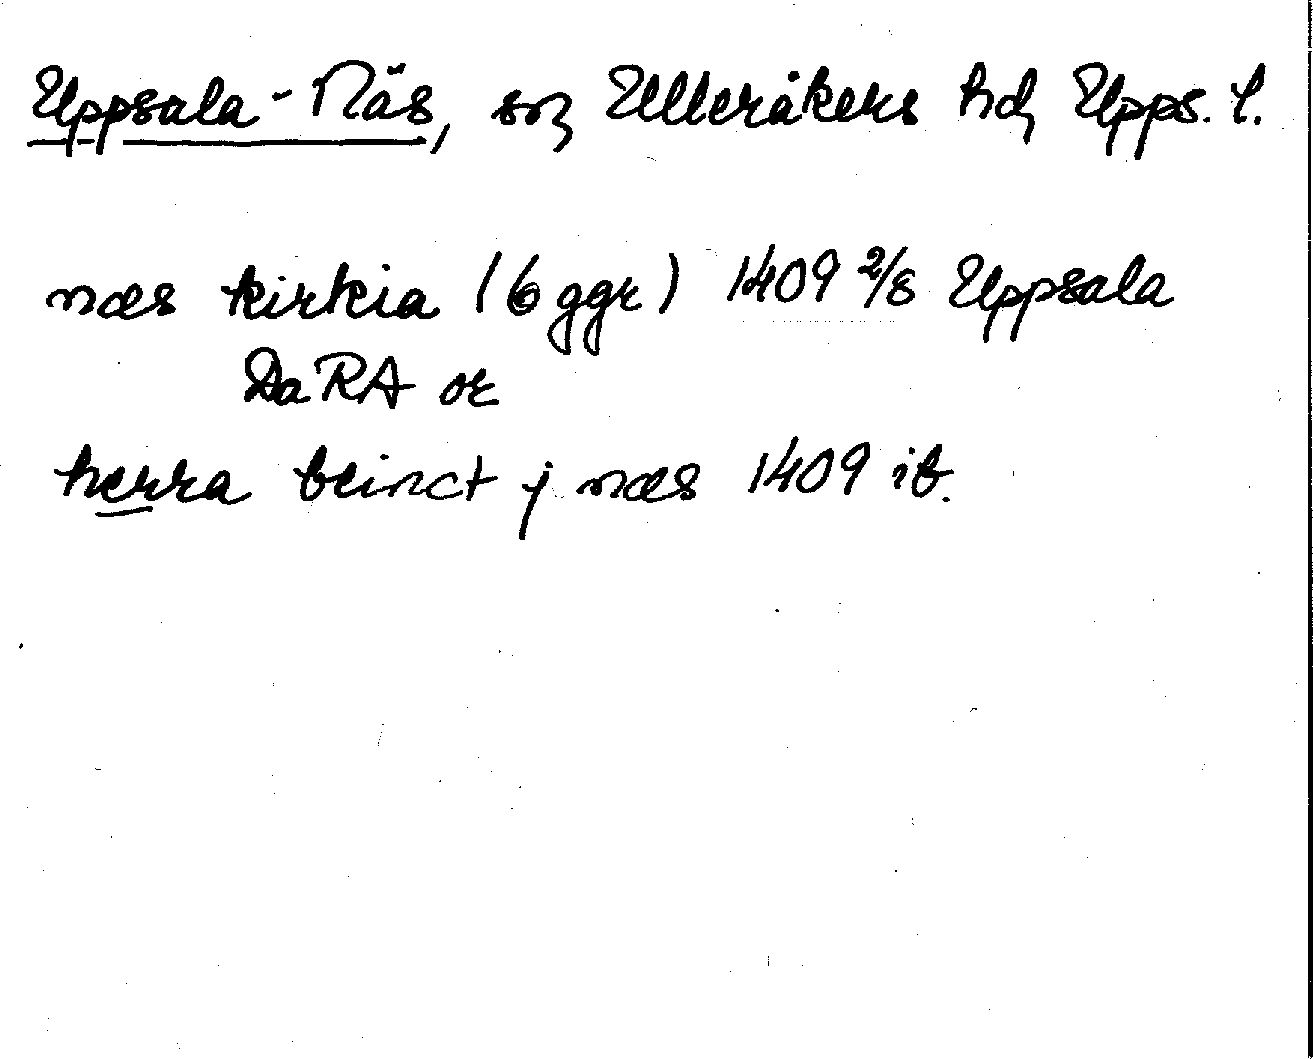 Uppsala-Näs, sn, Ulleråkers hd, Upps. l.
næs kirkia (6 ggr) 1409 2/8 Uppsala
DaRA or
herra beinct j næs 1409 ib.